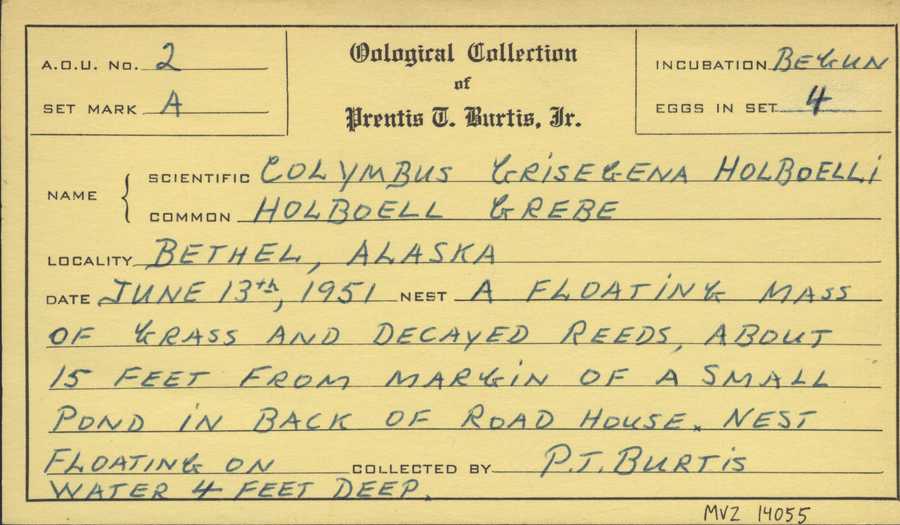 A.O.U. No. 2
SET MARK A
Oological Collection
of
Prentis T. Burtis, Jr.
INCUBATION BEGUN
EGGS IN SET 4
NAME
SCIENTIFIC COLYMBUS GRISEGENA HOLBOELLI
COMMON HOLBOELL GREBE
LOCALITY BETHEL, ALASKA
DATE JUNE 13th, 1951 NEST A FLOATING MASS
OF GRASS AND DECAYED REEDS, ABOUT
15 FEET FROM MARGIN OF A SMALL
POND IN BACK OF ROAD HOUSE. NEST
FLOATING ON COLLECTED BY P.T. BURTIS
WATER 4 FEET DEEP.
MVZ 14055